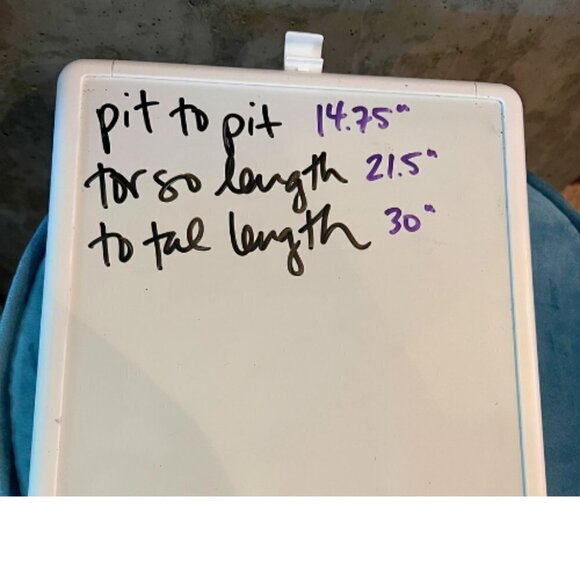 pit to pit 14.75"
torso length 21.5"
total length 30"